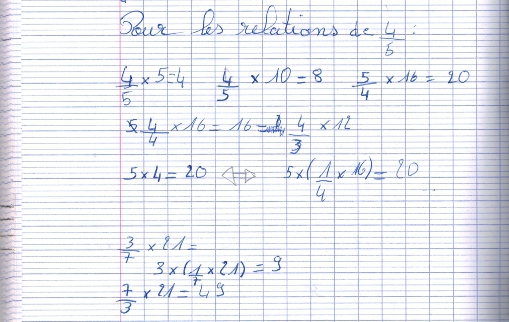 Pour les relations de 4/5 :
4/5 × 5 = 4 4/5 × 10 = 8 5/4 × 16 = 20
4/4 × 16 = 16 = 4/3 × 12
5 × 4 = 20 ⇔ 5 × (1/4 × 16) = 20
3/7 × 21 =
3 × (1/7 × 21) = 9
7/3 × 21 = 49